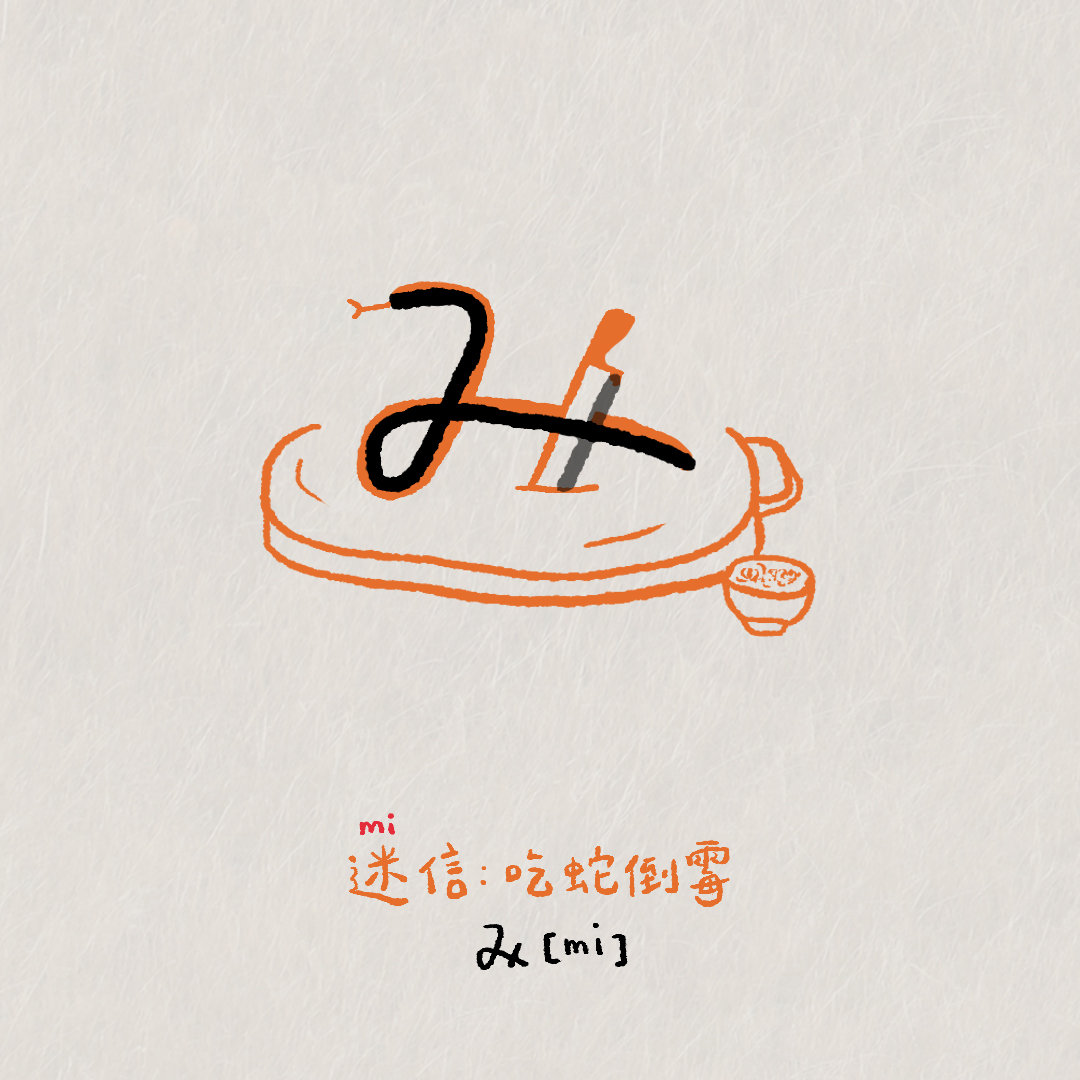 み
mi
迷信:吃蛇倒霉
み [mi]